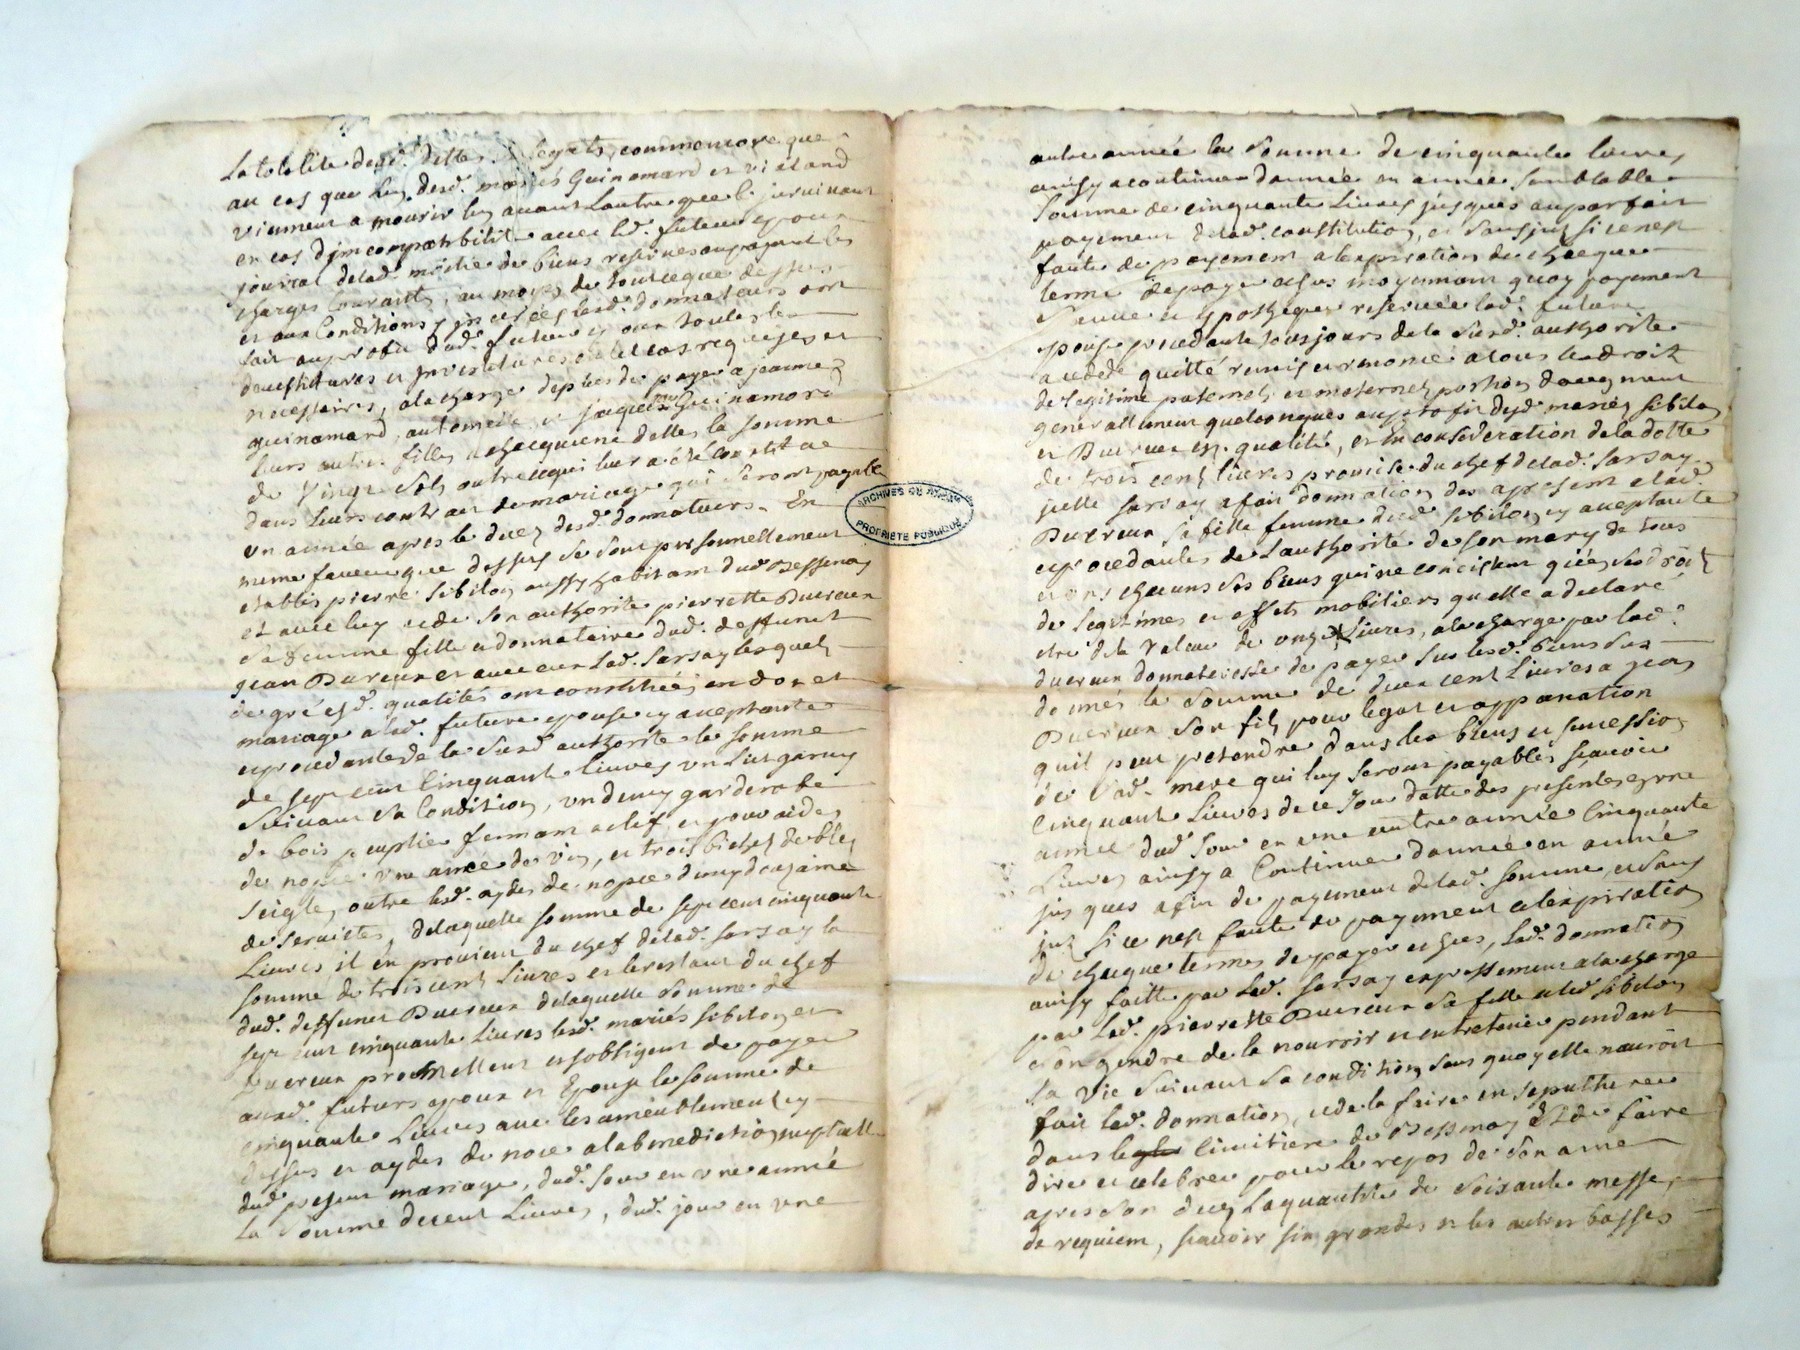 La totalité desd. dettes & legats, comme encore que
au cas que luy desd. mariés Guinamard et viviand
viennent a mourir luy avant lautre que le survivant
en cas dyncompatibilité avec led. futeur epoux
jouira de lad. moitié de biens reservés en payant les
charges courants, au moyen de tout ce que dessus
et aux conditions y inserées lesd. donnateurs ont
fait au profit dud. futeur epoux toutes les
devestitures et investitures en tel cas requises et
necessaires, a la charge depar luy de payer a jeanne
guinamard, antoinette et jaqueme Guinamard
leurs autres filles a chacquiene delles la somme
de vingt sols outre ce qui leur a été constitué
dans leurs contract de mariage qui seront payable
un année apres le decez desd. donnateurs. En
meme faveur que dessus se sont personnellement
etablis pierre sibilon aussy habitant dud. Bessenay
et avec luy et de son authorité pierrette Duereux
sa femme fille et donnataire dud. deffunct
jean Duereux et avec eux lad. sarsay lesquels
de gré esd. qualités ont constitués en dot et
mariage a lad. future epouse cy aceptante
et procedante de la susd. authorité la somme
de sept cent cinquante livres un lict garny
suivant sa condition, un demy garderobe
de bois peuplie fermant a clef, et pour aides
de nopce une anée de vin, et trois bichet de bled
seigle, outre lesd. aydes de nopce demy douzaine
de serviettes, de laquelle somme de sept cent cinquante
Livres il en provient du chef de lad. sarsay la
somme de trois cent livres et le restant du chef
dud. deffunct Duereux de laquelle somme de
sept cent cinquante livres lesd. mariés sibilon et
Duereux promettent et sobligent de payer
auxd. futurs epoux et Epouse la somme de
cinquante Livres avec les ameublement cy
dessus et aydes de noce a la benediction nuptialle
dud. present mariage, dud. jour en une année
la somme de cent Livres, dud. jour en une
autre année la somme de cinquante livres
ainsy a continuer dannée en année semblable
somme de cinquante Livres jusques au parfait
payement de lad. constitution, et sans jnt. si ce nest
faute de payement a lexpiration de chacque
terme de paye et sus moyennant quoy payement
tenue et hypotheque reservée lad. future
epouse procedante tousjours de la susd. authorité
a cedé quitté remis et renoncé a tous les droit
de legitime paternels et maternels portion daugment
generallement quelconques au profit desd. mariés sibilon
et Duereux esd. qualité, et en consideration de la dotte
de trois cent livres promise du chef de lad. sarsay.
jcelle sarsay a fait donnation des apresent a lad.
Duereux sa fille femme dud. sibilon cy aceptante
et procedante de lauthorité de son mary de tous
et un chacuns ses biens qui ne concistent quen ses droit
de legitimes et effets mobiliers quelle a declaré
etre de la valeur de onze Livres, a la charge par lad.
duereux donnateresse de payer sus lesd. biens sus
donnés la somme de deux cent Livres a jean
Duereux son fils pour legat et apanation
quil peut pretendre dans les biens et succession
de lad. mere qui luy seront payables scavoir
Cinquante Livres de ce jour datte des presentes en une
année dud. jour en une autre année Cinquante
Livres ainsy a continuer dannée en année
jusques a fin de payement de lad. somme et sans
jnt. si ce nest faute de payement a lexpiration
de chacque termes de payer et sus, lad. donnation
ainsy faitte par lad. sarsay expressement a la charge
par lad. pierrette Duereux sa fille et led. sibilon
son gendre de la nourrir et entretenir pendant
sa vie suivant sa condition sans quoy elle nauroit
fait lad. donnation, et de la faire ensepulturer
dans le cimitiere de Bessenay & de faire
dire et celebrer pour le repos de son ame
apres son decez la quantité de soixante messe,
de requiem, scavoir six grandes et les autres basses
ARCHIVES DU RHÔNE
PROPRIETE PUBLIQUE